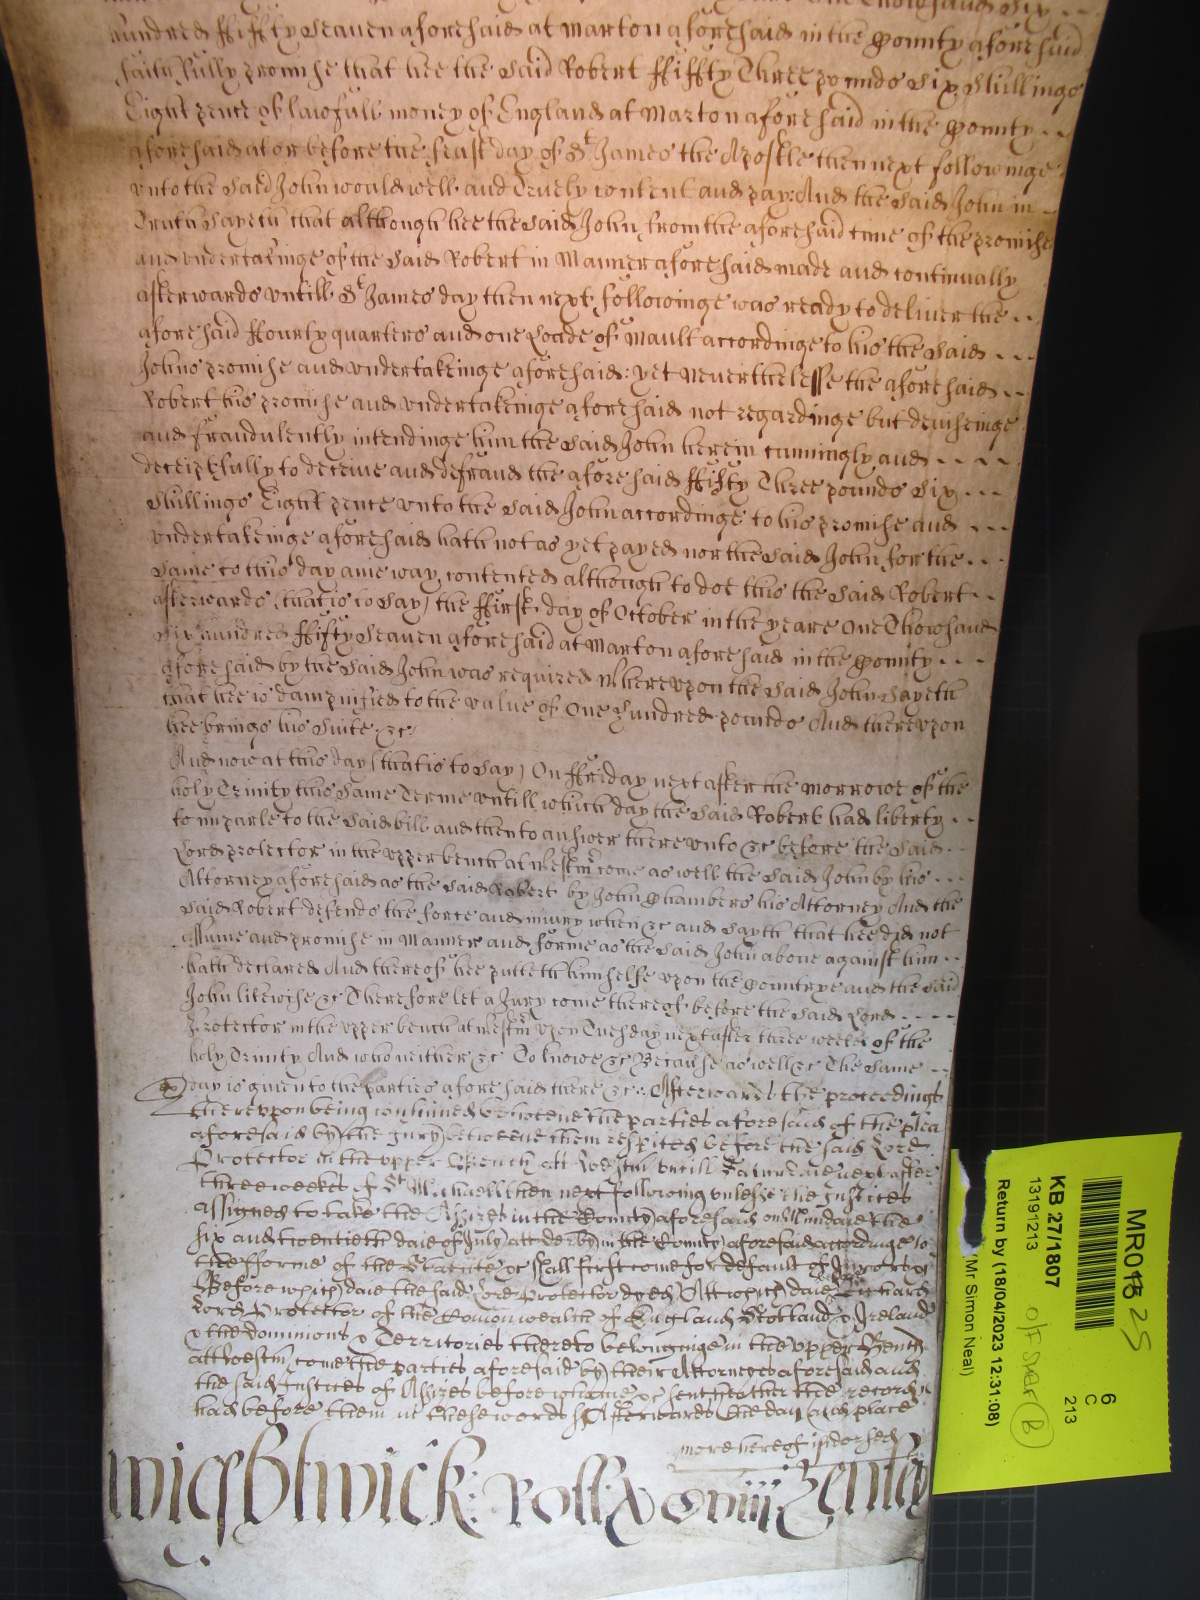 One Thowsand Six
hundred ffifty Seaven aforesaid at Marton aforesaid in the County aforesaid
faithfully promise that hee the said Robert ffiffty Three pounds Six Shillings
Eight pence of lawfull money of England at Marton aforesaid in the County
aforesaid at or before the feast day of St James the Apostle then next followinge
unto the said John would well and Truely content and pay: And the said John in
Truth Sayeth that although hee the said John from the aforesaid time of the promise
and undertakinge of the said Robert in Manner aforesaid made and continually
afterwards untill St James day then next followinge was ready to deliver the
aforesaid ffourty quarters and one Loade of Mault accordinge to his the said
Johns promise and undertakeinge aforesaid: yet neverthelesse the aforesaid
Robert his promise and undertakeinge aforesaid not regardinge but deviseinge
and fraudulently intendinge him the said John herein cunningly and
deceiptfully to deceive and defraud the aforesaid ffifty Three pounds Six
Shillings Eight pence unto the said John accordinge to his promise and
undertakeinge aforesaid hath not as yet payed nor the said John for the
same to this day anie way contented although to doe this the said Robert
afterwards (that is to say) the ffirst day of October in the yeare One Thowsand
Six hundred ffifty Seaven aforesaid at Marton aforesaid in the County
aforesaid by the said John was required Whereupon the said John Sayeth
that hee is dampnified to the value of One Hundred pounds And thereupon
hee brings his suite &c
And now at this day (that is to say) On ffriday next after the morrowe of the
holy Trinity this same Terme untill which day the said Robert had liberty
to imparle to the said bill and then to answer thereunto &c before the said
Lord protector in the upper bench at Westmr come as well the said John by his
Attorney aforesaid as the said Robert by John Chambers his Attorney And the
said Robert defends the force and iniury when &c and Sayth that hee did not
assume and promise in Manner and forme as the said John above against him
hath declared And thereof hee putteth himselfe upon the Countrye and the said
John likewise &c Therefore let a Jury come thereof before the said Lord
Protector in the upper bench at Westmr upon Tuesday next after three weekes of the
holy Trinity And who neither &c To knowe &c Because as well &c The same
day is given to the parties aforesaid there &c: Afterwards the proceedings
thereupon being continued betweene the parties aforesaid of the plea
aforesaid by the Jury betweene them respited before the said Lord
Protector in the upper Bench att Westm untill Saturdaie next after
three weekes of St Michaell then next following unlesse the Justices
Assigned to take the Assizes in the County aforesaid on Mundaie the
six and twentieth daie of July att derby in the County aforesaid accordinge to
the fforme of the Statute &c shall first come for default of Jurors &c
Before which daie the said Lord Protector dyed Att which daie before Richard
Lord Protector of the Comonwealth of England Scotland & Ireland
& the dominions & Territories thereto belonginge in the upper Bench
att Westm come the parties aforesaid by their Attorneys aforesaid And
the said Justices of Assizes before whome &c sent hether their record
had before them in these words ss Afterwards the day and place
more hereof indorsed
wigsbtwick: Roll:
MR018 25
6
C
213
KB 27/1807
13191213
Return by (18/04/2023 12:31:08)
(Mr Simon Neal)
B